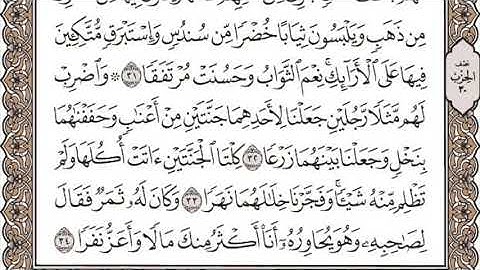 مِن ذَهَبٍ وَيَلْبَسُونَ ثِيَابًا خُضْرًا مِّن سُندُسٍ وَإِسْتَبْرَقٍ مُّتَّكِـِٔينَ
فِيهَا عَلَى ٱلْأَرَآئِكِۚ نِعْمَ ٱلثَّوَابُ وَحَسُنَتْ مُرْتَفَقًا ٣١ ۞ وَٱضْرِبْ
لَهُم مَّثَلًا رَّجُلَيْنِ جَعَلْنَا لِأَحَدِهِمَا جَنَّتَيْنِ مِنْ أَعْنَٰبٍ وَحَفَفْنَٰهُمَا
بِنَخْلٍ وَجَعَلْنَا بَيْنَهُمَا زَرْعًا ٣٢ كِلْتَا ٱلْجَنَّتَيْنِ ءَاتَتْ أُكُلَهَا وَلَمْ
تَظْلِم مِّنْهُ شَيْـًٔاۚ وَفَجَّرْنَا خِلَٰلَهُمَا نَهَرًا ٣٣ وَكَانَ لَهُۥ ثَمَرٌ فَقَالَ
لِصَٰحِبِهِۦ وَهُوَ يُحَاوِرُهُۥٓ أَنَا۠ أَكْثَرُ مِنكَ مَالًا وَأَعَزُّ نَفَرًا ٣٤
نصف
الحزب
٣٠